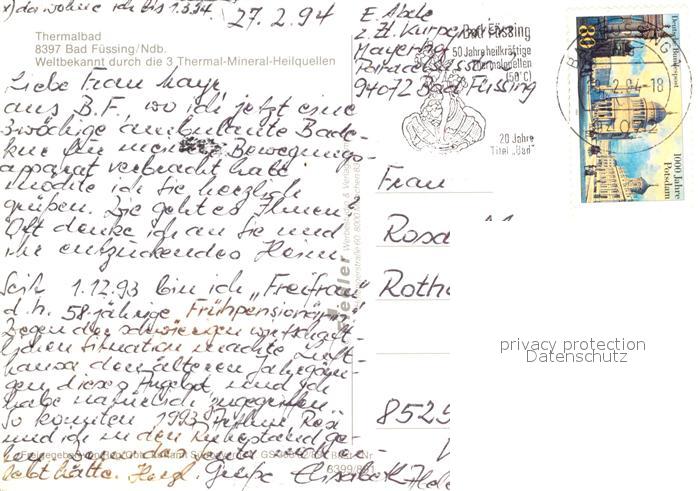 x) da wohne ich bis 1.3.94.
27.2.94
Thermalbad
8397 Bad Füssing/Ndb.
Weltbekannt durch die 3 Thermal-Mineral-Heilquellen
E. Abele
z. Zt. Kurpension
Mayerhof
94072 Bad Füssing
Bad Füssing
50 Jahre heilkräftige
Thermalquellen
(56°C)
20 Jahre
Titel „Bad"
Deutsche Bundespost
80
1000 Jahre
Potsdam
Liebe Frau Mayr,
aus B.F., wo ich jetzt eine
3wöchige ambulante Bade-
kur für meinen Bewegungs-
apparat verbracht habe
möchte ich Sie herzlich
grüßen. Wie geht es Ihnen?
Oft denke ich an Sie und
Ihr entzückendes Heim.
Seit 1.12.93 bin ich „Freifrau"
d.h. 58-jährige Frühpensionärin
Wegen der schwierigen wirtschaft-
lichen Situation machte Luft-
hansa den älteren Jahrgän-
gen dieses Angebot und ich
habe natürlich zugegriffen.
So konnten 1993 Rosi
und ich in den Ruhestand ge-
hen.
hätte. Herzl. Grüße Elisabeth Abele
Frau
Rosa M
Roth
8525
privacy protection
Datenschutz